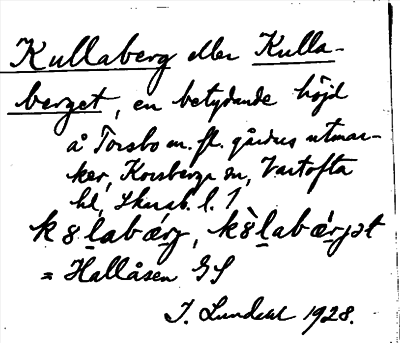 Kullaberg eller Kulla-
berget, en betydande höjd
å Torsbo m. fl. gårdars utmar-
ker, Korsberga sn, Vartofta
hd, Skarab. l. 1
= Hallåsen GS
J. Lundahl 1928.